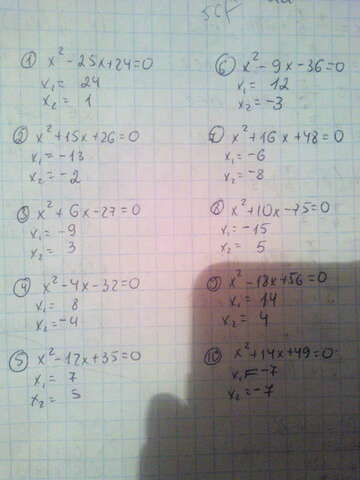 5cf
① x² - 25x + 24 = 0
x₁ = 24
x₂ = 1
② x² + 15x + 26 = 0
x₁ = -13
x₂ = -2
③ x² + 6x - 27 = 0
x₁ = -9
x₂ = 3
④ x² - 4x - 32 = 0
x₁ = 8
x₂ = -4
⑤ x² - 12x + 35 = 0
x₁ = 7
x₂ = 5
⑥ x² - 9x - 36 = 0
x₁ = 12
x₂ = -3
⑦ x² + 16x + 48 = 0
x₁ = -6
x₂ = -8
⑧ x² + 10x - 75 = 0
x₁ = -15
x₂ = 5
⑨ x² - 18x + 56 = 0
x₁ = 14
x₂ = 4
⑩ x² + 14x + 49 = 0
x₁ = -7
x₂ = -7